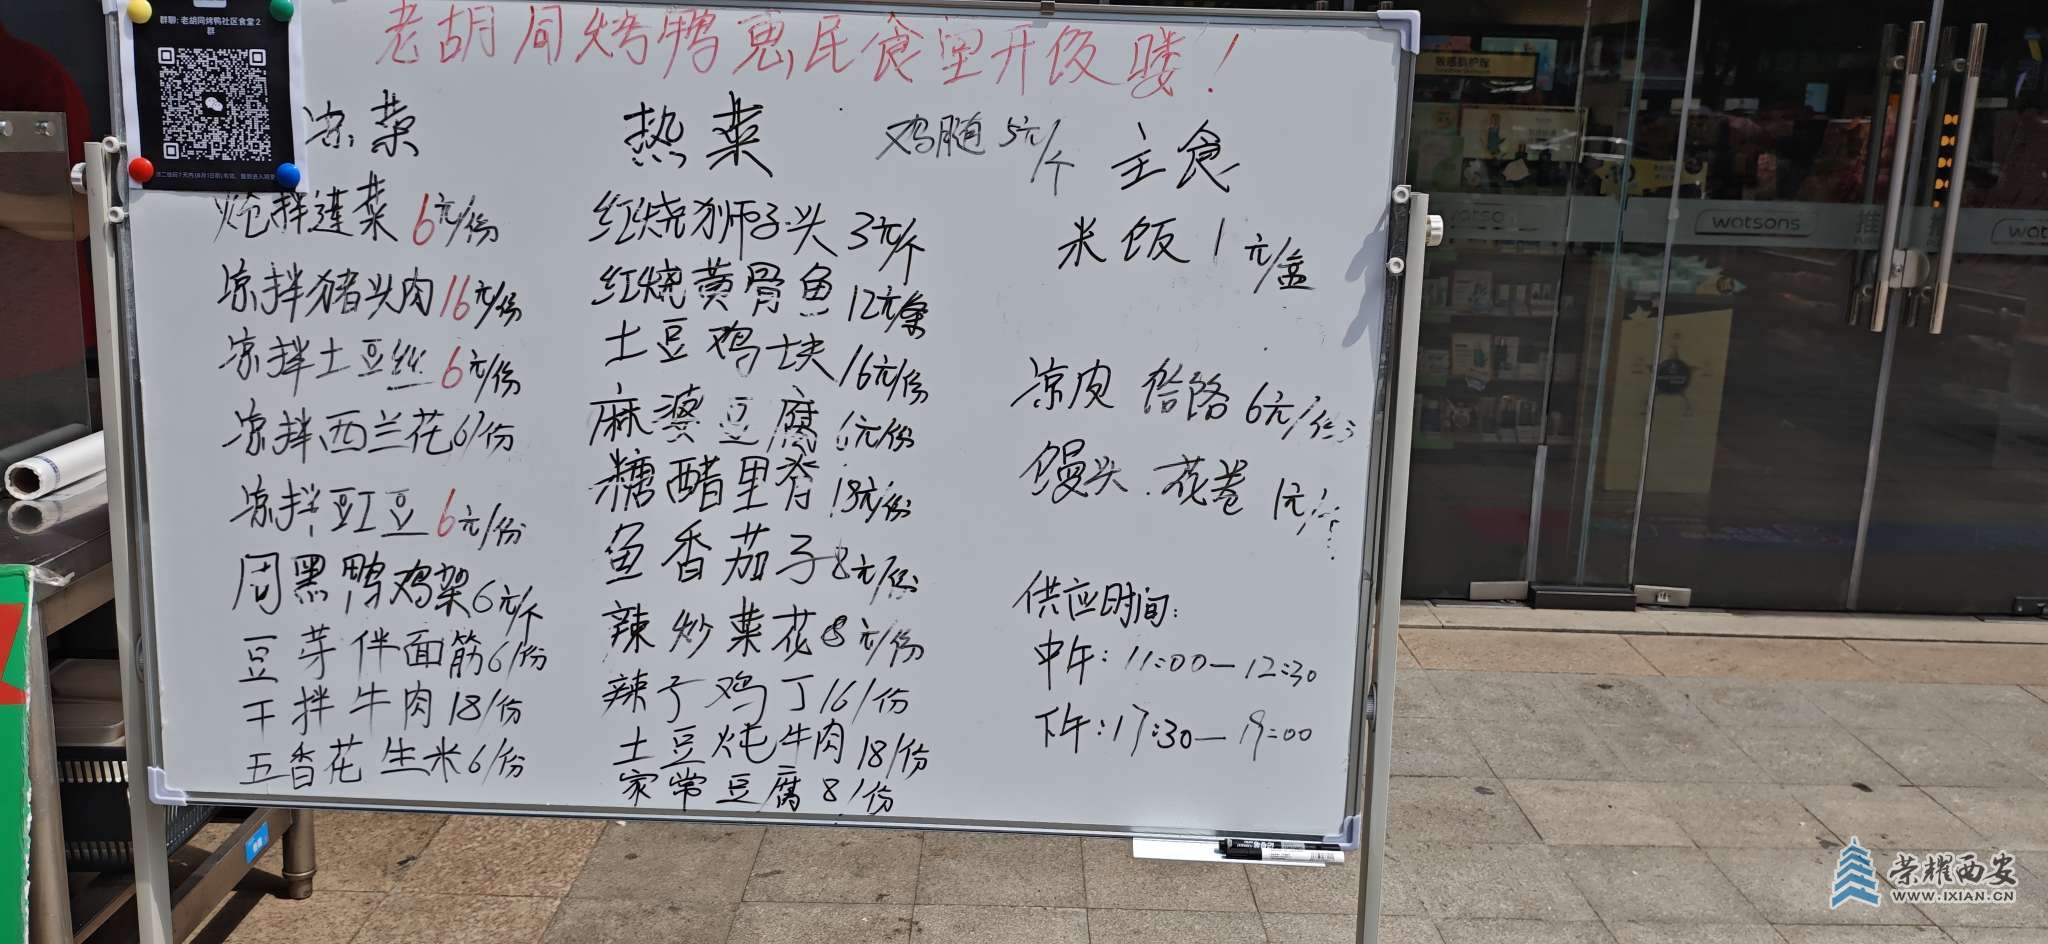 群聊: 老胡同烤鸭社区食堂2
群
老胡同烤鸭惠民食堂开饭喽！
凉菜
炝拌莲菜 6元/份
凉拌猪头肉 16元/份
凉拌土豆丝 6元/份
凉拌西兰花 6/份
凉拌豇豆 6元/份
周黑鸭鸡架 6元/个
豆芽伴面筋 6/份
干拌牛肉 18/份
五香花生米 6/份
热菜
红烧狮子头 3元/个
红烧黄骨鱼 12元/条
土豆鸡块 16元/份
麻婆豆腐 6元/份
糖醋里脊 18元/份
鱼香茄子 8元/份
辣炒菜花 8元/份
辣子鸡丁 16/份
土豆炖牛肉 18/份
家常豆腐 8/份
鸡腿 5元/个
主食
米饭 1元/盒
凉皮 饸饹 6元/份
馒头.花卷 1元/个
供应时间:
中午: 11:00—12:30
下午: 17:30—19:00
watsons
推
推
荣耀西安
WWW.IXIAN.CN